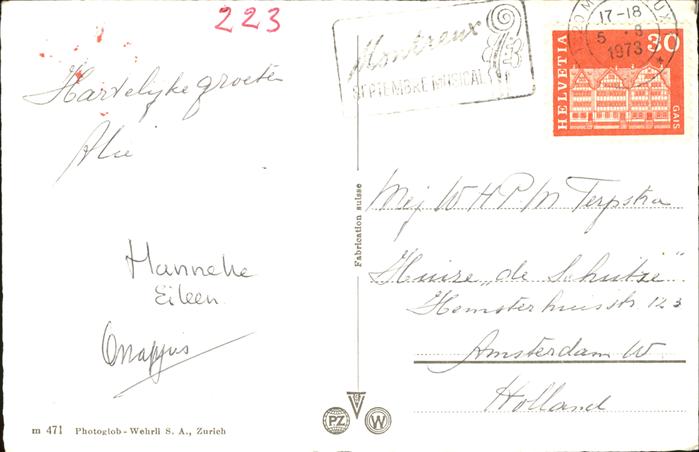 223
Montreux
SEPTEMBRE MUSICAL
17-18
5 . 8
1973
HELVETIA
30
GAIS
Hartelijke groeten
Hanneke
Eileen
Mej W H P M Terpstra
Huize „de Schutse"
Hemsterhuisstr 123
Amsterdam W
Holland
Fabrication suisse
PZ
W
m 471 Photoglob-Wehrli S. A., Zurich